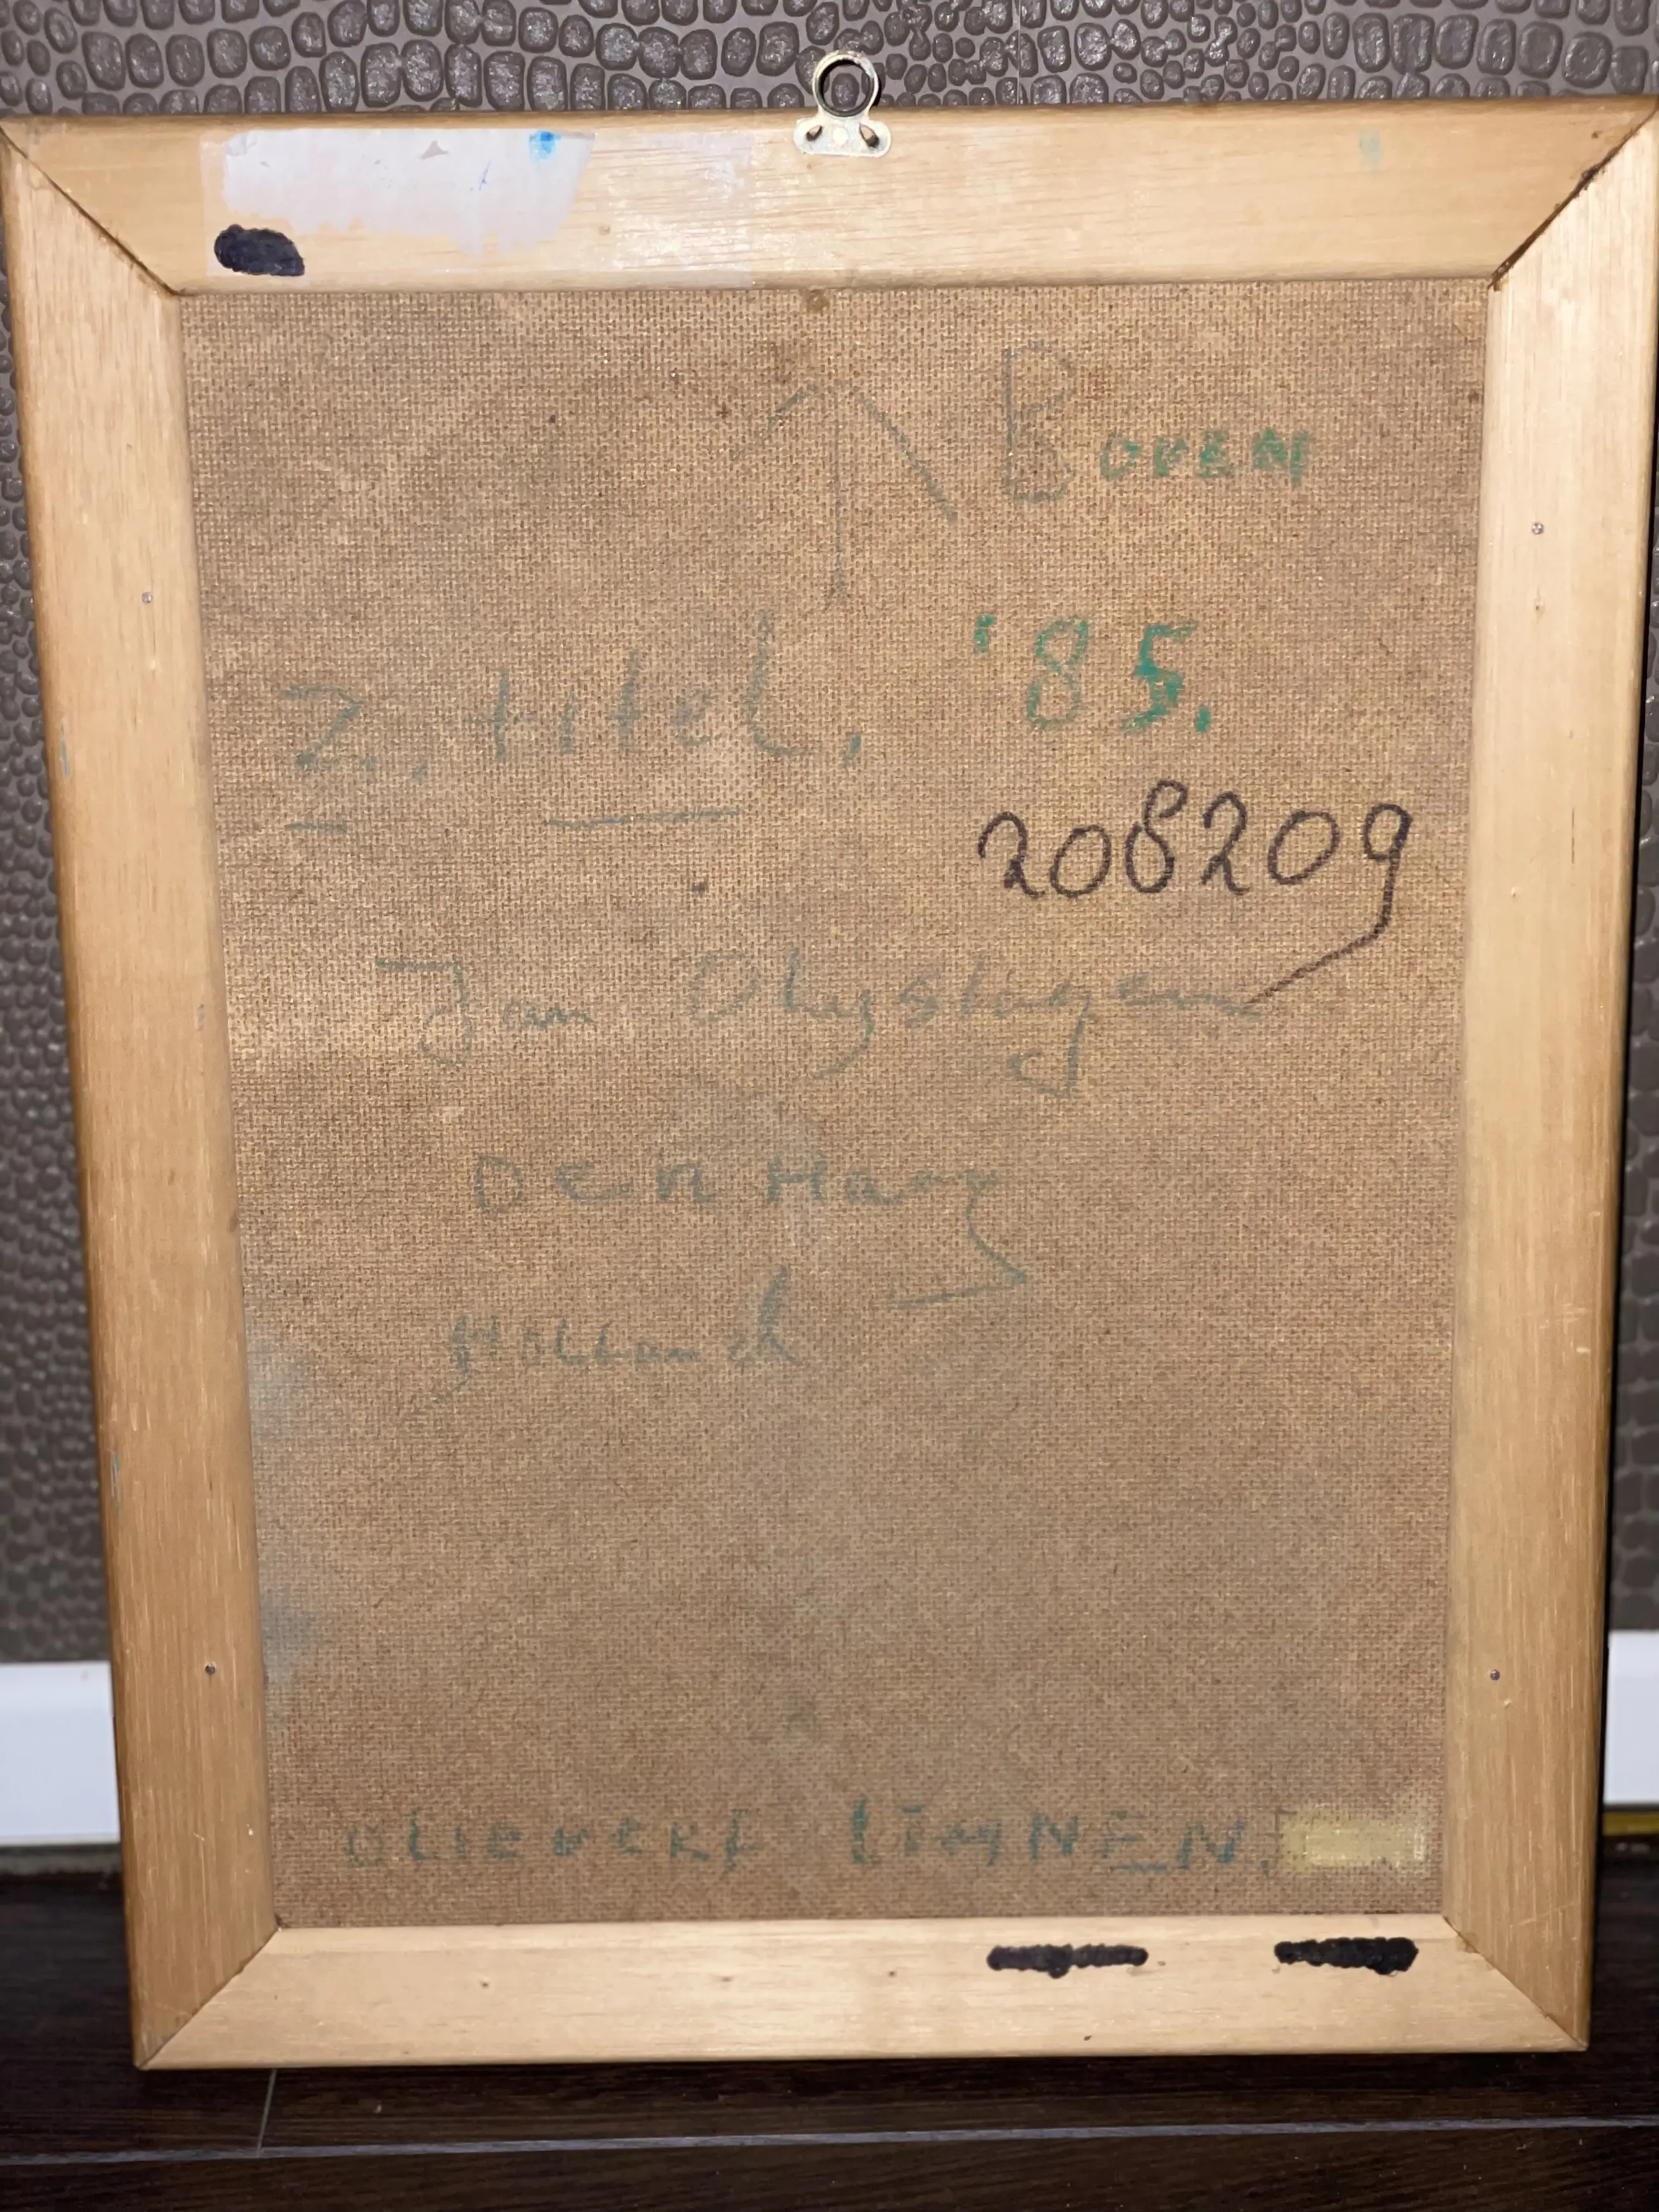 Boven
Z. titel, '85.
208209
Jan
Den Haag
Holland
OLIEVERF